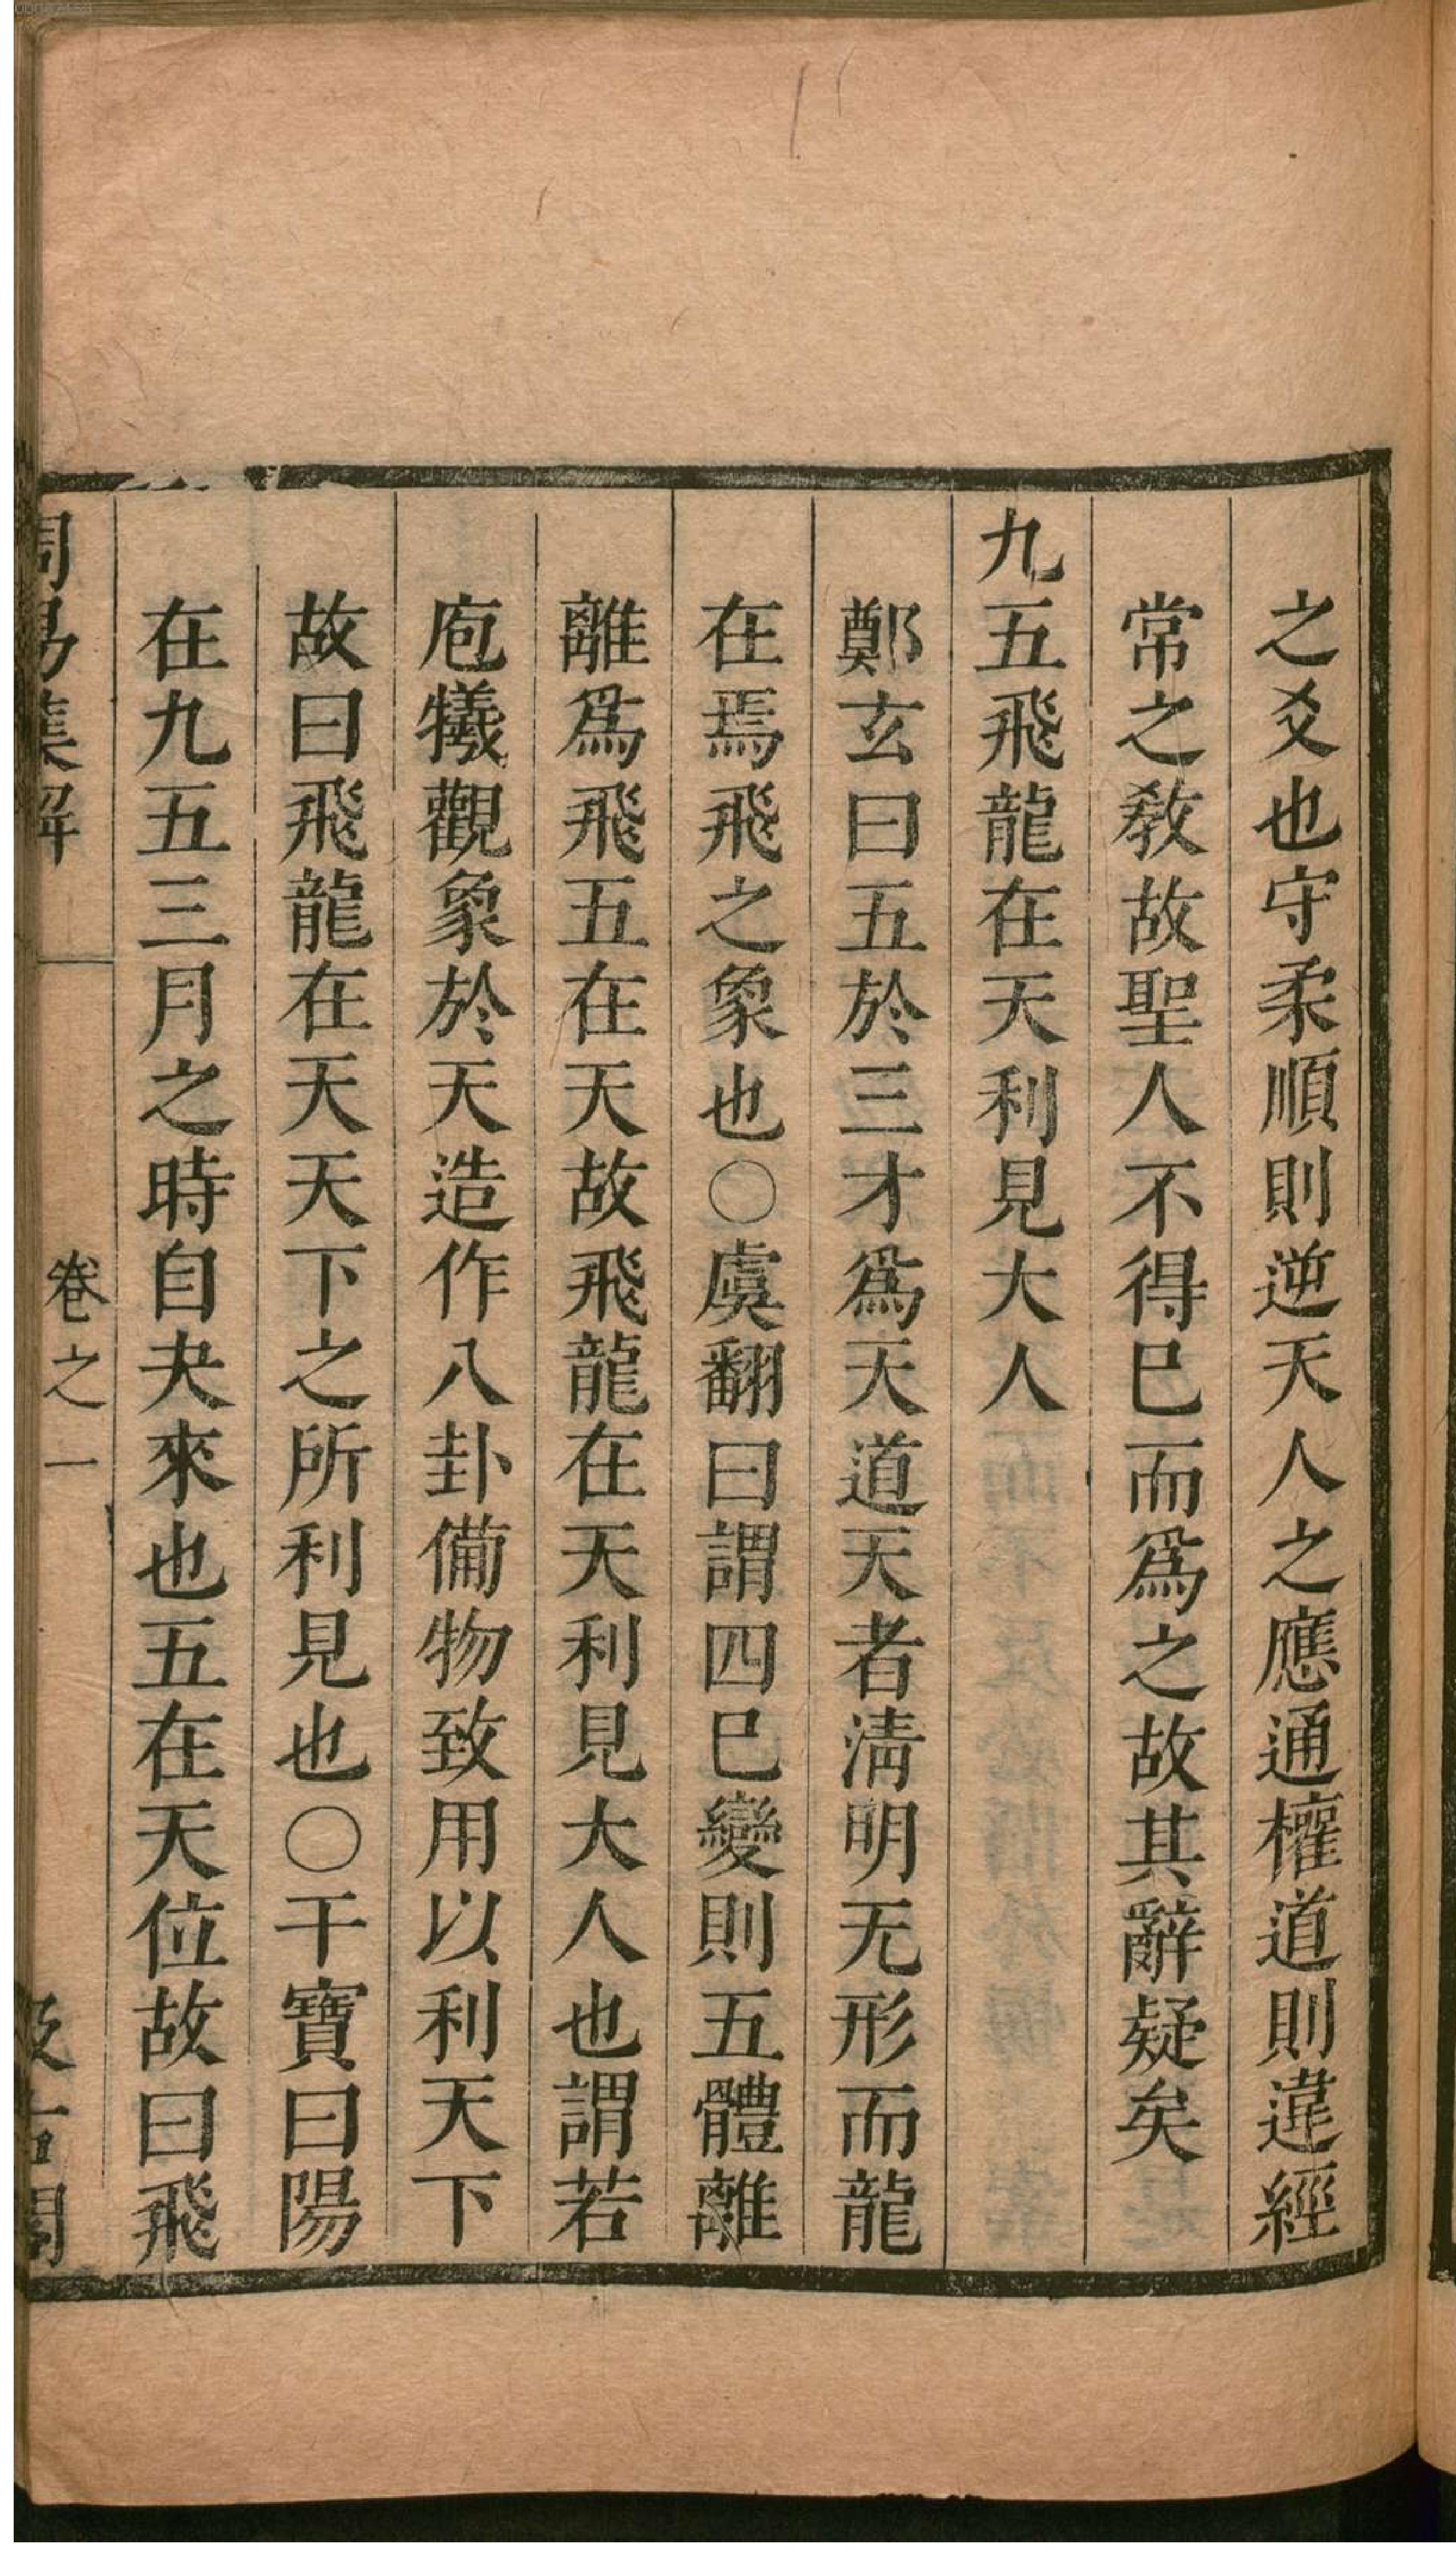 之爻也守柔順則逆天人之應通權道則違經
常之敎故聖人不得巳而爲之故其辭疑矣
九五飛龍在天利見大人
鄭玄曰五於三才爲天道天者淸明无形而龍
在焉飛之象也○虞翻曰謂四巳變則五體離
離爲飛五在天故飛龍在天利見大人也謂若
庖犧觀象於天造作八卦備物致用以利天下
故曰飛龍在天天下之所利見也○干寶曰陽
在九五三月之時自夬來也五在天位故曰飛
周易集解 卷之一 汲古閣